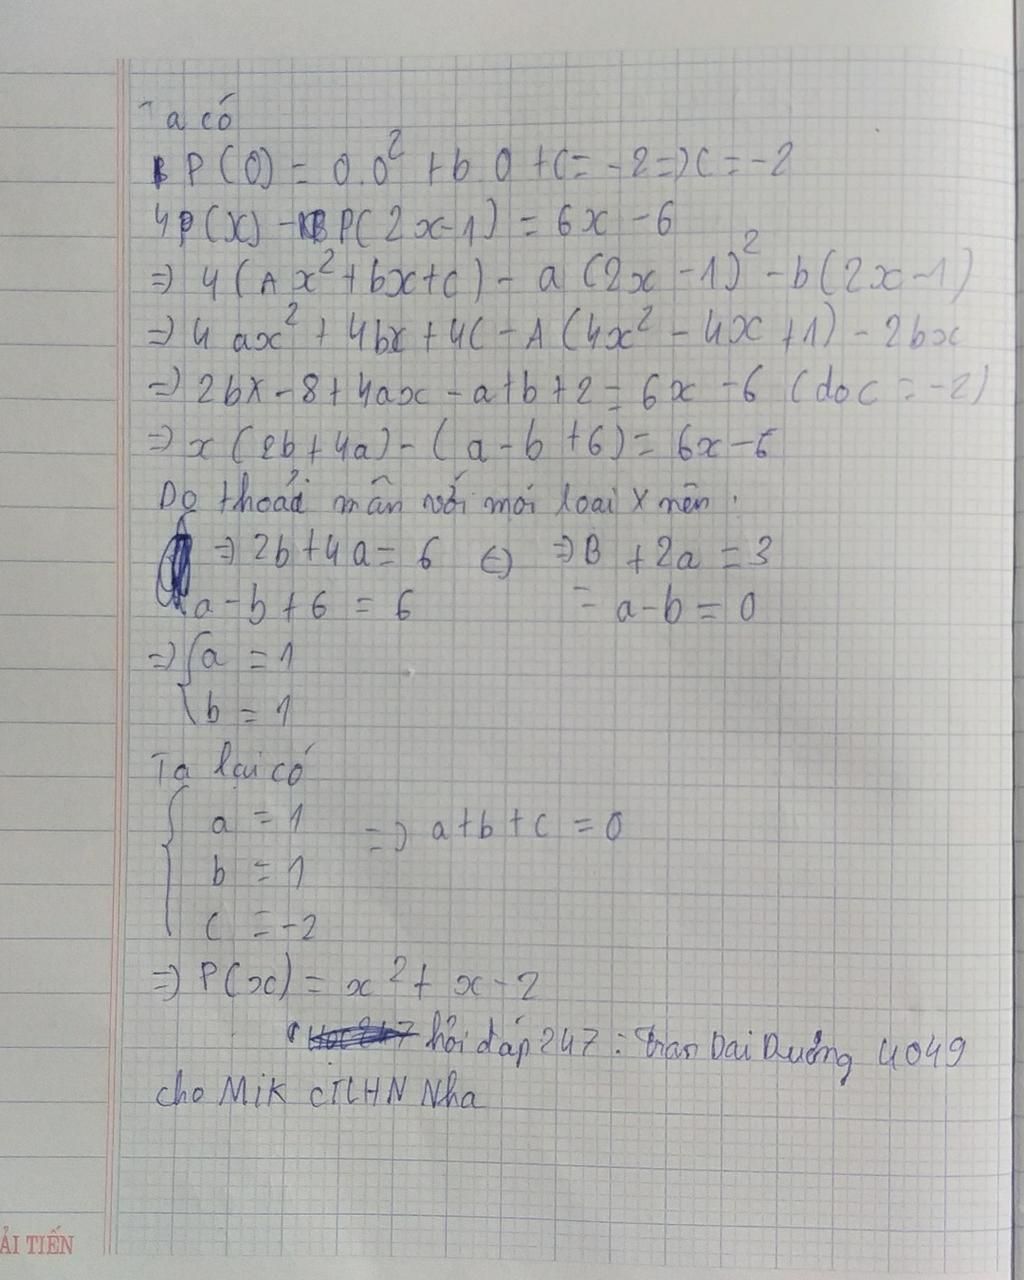 Ta có
P(0) = 0.0² + b.0 + C = -2 => C = -2
4P(x) - P(2x-1) = 6x - 6
=> 4(Ax² + bx + c) - a(2x - 1)² - b(2x - 1)
=> 4ax² + 4bx + 4C - A(4x² - 4x + 1) - 2bx
=> 2bx - 8 + 4ax - a + b + 2 = 6x - 6 (do c = -2)
=> x(2b + 4a) - (a - b + 6) = 6x - 6
Do thoả mãn với mói loai x nên :
=> 2b + 4a = 6 <=> => B + 2a = 3
a - b + 6 = 6 = a - b = 0
=> { a = 1
b = 1
Ta lại có
a = 1 => a + b + c = 0
b = 1
c = -2
=> P(x) = x² + x - 2
hỏi đáp 247 : Tran Dai Dương 4049
cho Mik cTLHN Nha
ẢI TIẾN